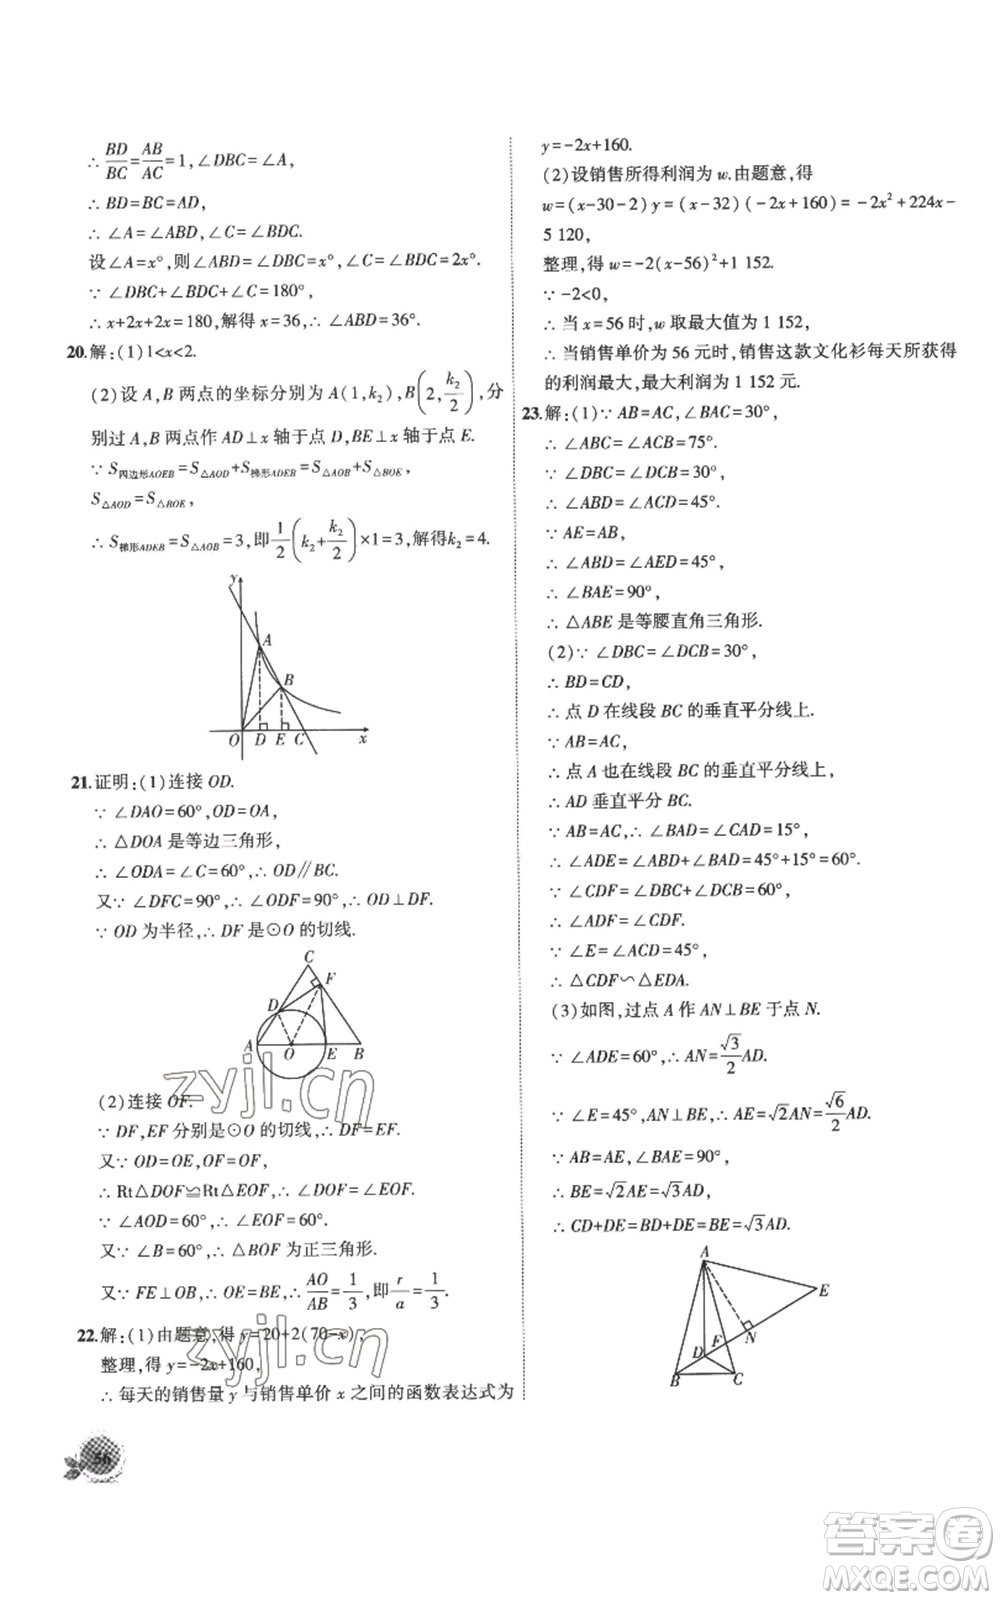 ∴ BD/BC=AB/AC=1,∠DBC=∠A,
∴ BD=BC=AD,
∴ ∠A=∠ABD,∠C=∠BDC.
设∠A=x°,则∠ABD=∠DBC=x°,∠C=∠BDC=2x°.
∵ ∠DBC+∠BDC+∠C=180°,
∴ x+2x+2x=180,解得 x=36,∴ ∠ABD=36°.
20.解:(1)1<x<2.
(2)设 A,B 两点的坐标分别为 A(1,k₂),B(2,k₂/2),分
别过 A,B 两点作 AD⊥x 轴于点 D,BE⊥x 轴于点 E.
∵ S四边形AOEB=S△AOD+S梯形ADEB=S△AOB+S△BOE,
S△AOD=S△BOE,
∴ S梯形ADEB=S△AOB=3,即1/2(k₂+k₂/2)×1=3,解得k₂=4.
y
A
B
O D E C x
21.证明:(1)连接 OD.
∵ ∠DAO=60°,OD=OA,
∴ △DOA 是等边三角形,
∴ ∠ODA=∠C=60°,∴ OD∥BC.
又∵ ∠DFC=90°,∴ ∠ODF=90°,∴ OD⊥DF.
∵ OD 为半径,∴ DF 是⊙O 的切线.
C
F
D
A O E B
(2)连接 OF.
∵ DF,EF 分别是⊙O 的切线,∴ DF=EF.
又∵ OD=OE,OF=OF,
∴ Rt△DOF≌Rt△EOF,∴ ∠DOF=∠EOF.
∵ ∠AOD=60°,∴ ∠EOF=60°,
又∵ ∠B=60°,∴ △BOF 为正三角形.
又∵ FE⊥OB,∴ OE=BE,∴ AO/AB=1/3,即r/a=1/3.
22.解:(1)由题意,得 y=20+2(70-x),
整理,得 y=-2x+160,
∴ 每天的销售量 y 与销售单价 x 之间的函数表达式为
zyjl.cn
zyjl.cn
56
y=-2x+160.
(2)设销售所得利润为 w.由题意,得
w=(x-30-2)y=(x-32)(-2x+160)=-2x²+224x-
5 120,
整理,得 w=-2(x-56)²+1 152.
∵ -2<0,
∴ 当 x=56 时,w 取最大值为 1 152,
∴ 当销售单价为 56 元时,销售这款文化衫每天所获得
的利润最大,最大利润为 1 152 元.
23.解:(1)∵ AB=AC,∠BAC=30°,
∴ ∠ABC=∠ACB=75°.
∵ ∠DBC=∠DCB=30°,
∴ ∠ABD=∠ACD=45°.
∵ AE=AB,
∴ ∠ABD=∠AED=45°,
∴ ∠BAE=90°,
∴ △ABE 是等腰直角三角形.
(2)∵ ∠DBC=∠DCB=30°,
∴ BD=CD,
∴ 点 D 在线段 BC 的垂直平分线上.
∵ AB=AC,
∴ 点 A 也在线段 BC 的垂直平分线上,
∴ AD 垂直平分 BC.
∵ AB=AC,∴ ∠BAD=∠CAD=15°,
∴ ∠ADE=∠ABD+∠BAD=45°+15°=60°.
∵ ∠CDF=∠DBC+∠DCB=60°,
∴ ∠ADF=∠CDF.
∵ ∠E=∠ACD=45°,
∴ △CDF∽△EDA.
(3)如图,过点 A 作 AN⊥BE 于点 N.
∵ ∠ADE=60°,∴ AN=√3/2 AD.
∵ ∠E=45°,AN⊥BE,∴ AE=√2AN=√6/2 AD.
∵ ∠ABE=45°,∠BAE=90°,
∴ BE=√2AE=√3AD,
∴ CD+DE=BD+DE=BE=√3AD.
A
E
N
F
D
B C
答案圈
MXQE.COM